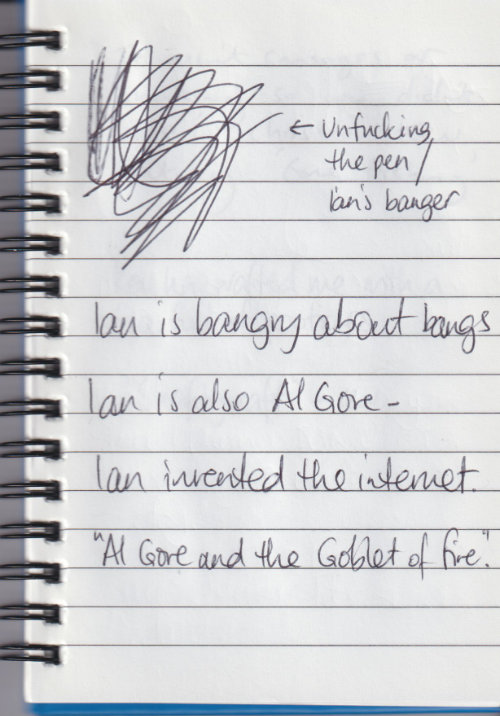 ← Unfucking
the pen /
Ian's banger
Ian is bangry about bangs
Ian is also Al Gore –
Ian invented the internet.
"Al Gore and the Goblet of fire."